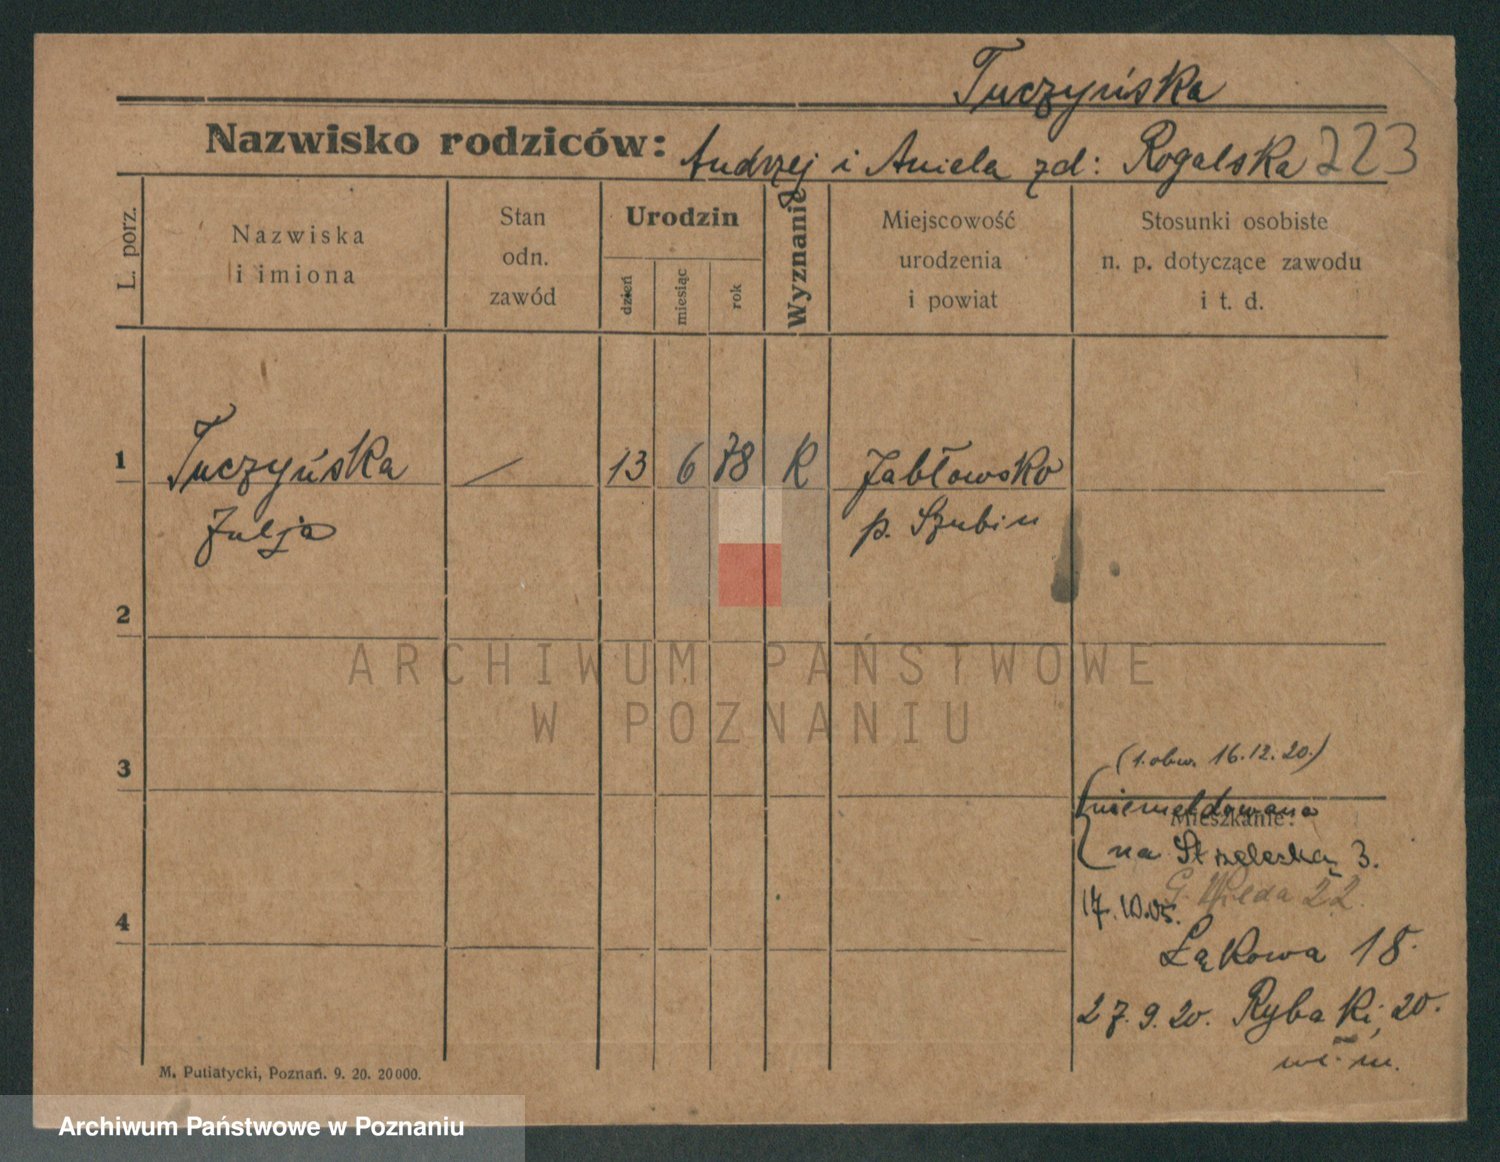 Tuczyńska
Nazwisko rodziców: Andrzej i Aniela zd: Rogalska 223
L. porz.
Nazwiska
i imiona
Stan
odn.
zawód
Urodzin
dzień
miesiąc
rok
Wyznanie
Miejscowość
urodzenia
i powiat
Stosunki osobiste
n. p. dotyczące zawodu
i t. d.
1 Tuczyńska 13 6 78 K Jabłowsko
Julja p. Szubin
2
ARCHIWUM PAŃSTWOWE
W POZNANIU
3
(1. obw. 16.12.20.)
niemeldowana
Mieszkanie:
na Strzelecką 3.
G. Wilda 22.
17.10.05.
4
Łąkowa 18.
27.9.20. Rybaki 20.
M. Putiatycki, Poznań. 9. 20. 20000.
Archiwum Państwowe w Poznaniu